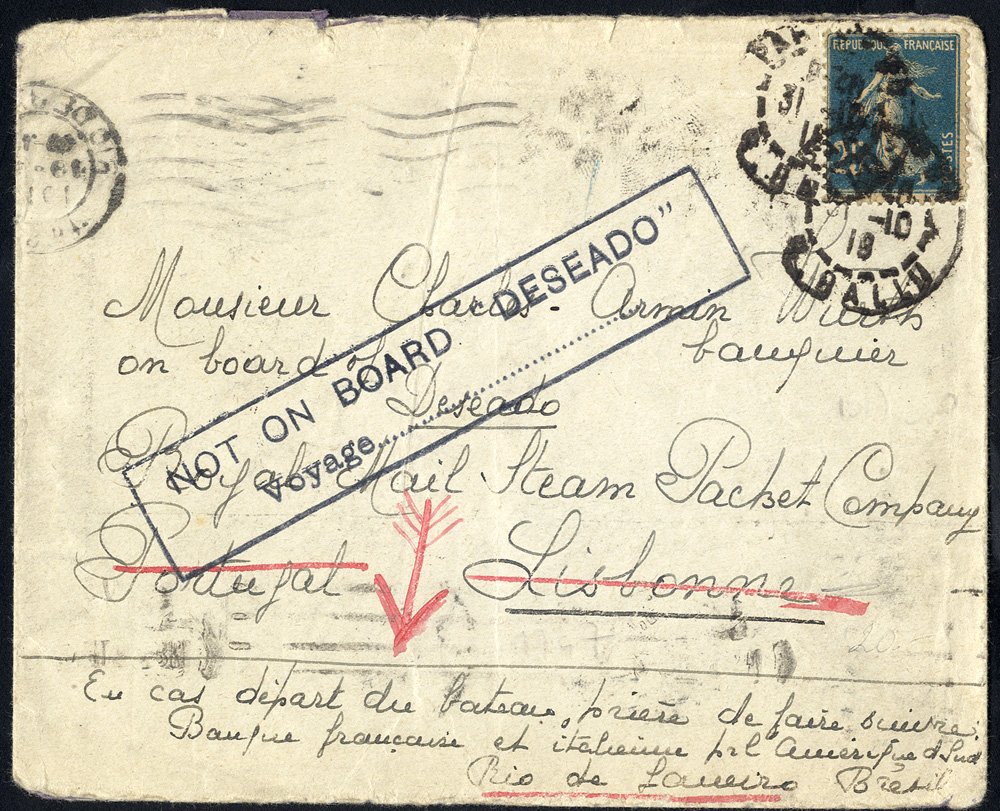 REPUBLIQUE FRANÇAISE
POSTES
31
-10
19
BALLU
NOT ON BOARD "DESEADO"
Voyage
Monsieur Charles-Armin Wuerth
on board of banquier
Deseado
Royal Mail Steam Packet Company
Portugal Lisbonne
En cas départ du bateau, prière de faire suivre:
Banque française et italienne pr l'Amérique d Sud
Rio de Janeiro Brésil